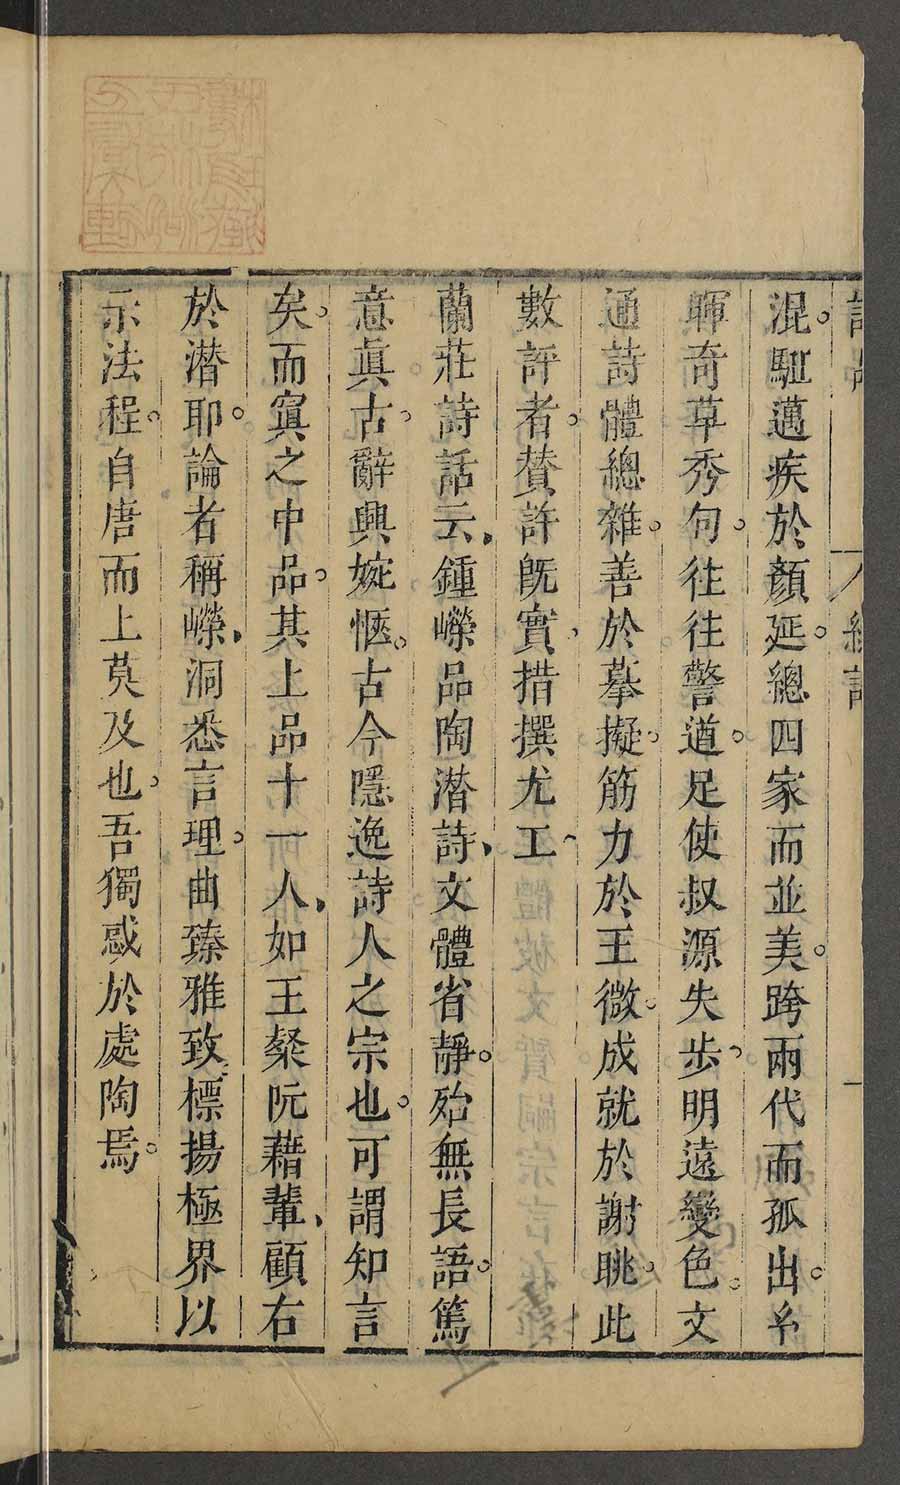 詩品 總評 一
混。馹邁疾於顏延。總四家而並美。跨兩代而孤出。令
暉奇草秀句。往往警道。足使叔源失步、明遠變色。文
通詩體總雜。善於摹擬。筋力於王微。成就於謝眺。此
數評者。賛許旣實、措撰尤工、
蘭莊詩話云、鍾嶸品陶潛詩、文體省靜。殆無長語。篤
意眞古。辭興婉愜。古今隱逸詩人之宗也。可謂知言
矣。而寘之中品。其上品十一人、如王粲阮藉輩、顧右
於潜耶。論者稱嶸、洞悉言理。曲臻雅致、標揚極界以
示法程。自唐而上莫及也。吾獨惑於處陶焉。